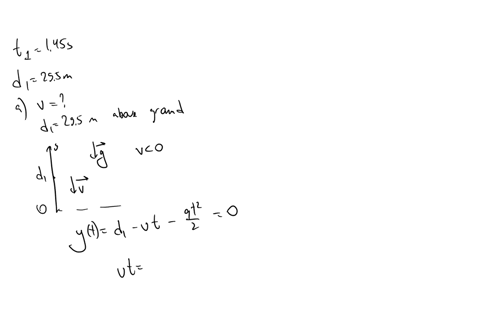 t₁ = 1.45s
d₁ = 29.5 m
a) v = ?
d₁ = 29.5 m above grand
↓g⃗ v<0
d₁
↓v⃗
0
y(t) = d₁ - vt - gt²/2 = 0
vt =